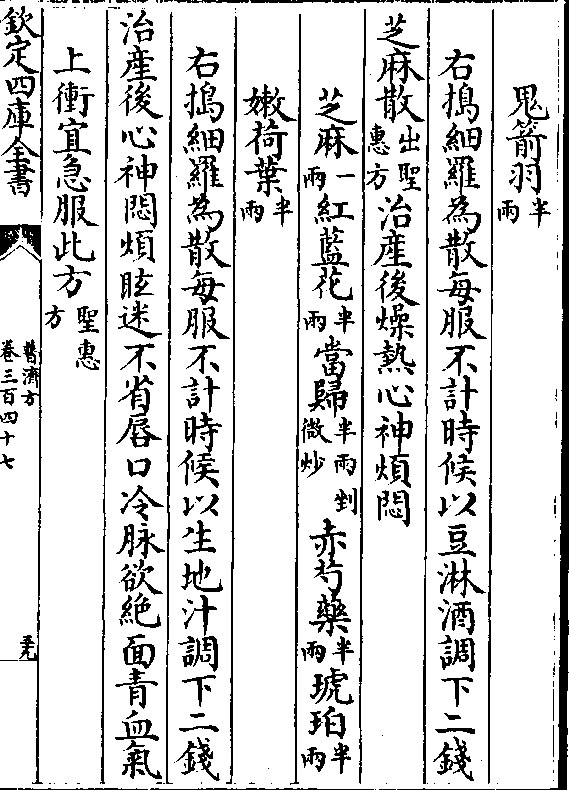 鬼箭羽半兩
右搗細羅為散每服不計時候以豆淋酒調下二錢
芝麻散出聖惠方治產後燥熱心神煩悶
芝麻一兩紅藍花半兩當歸半兩剉微炒赤芍藥半兩琥珀半兩
嫩荷葉半兩
右搗細羅為散每服不計時候以生地汁調下二錢
治產後心神悶煩眩迷不省唇口冷脉欲絕面青血氣
上衝宜急服此方聖惠方
欽定四庫全書
普濟方
卷三百四十七